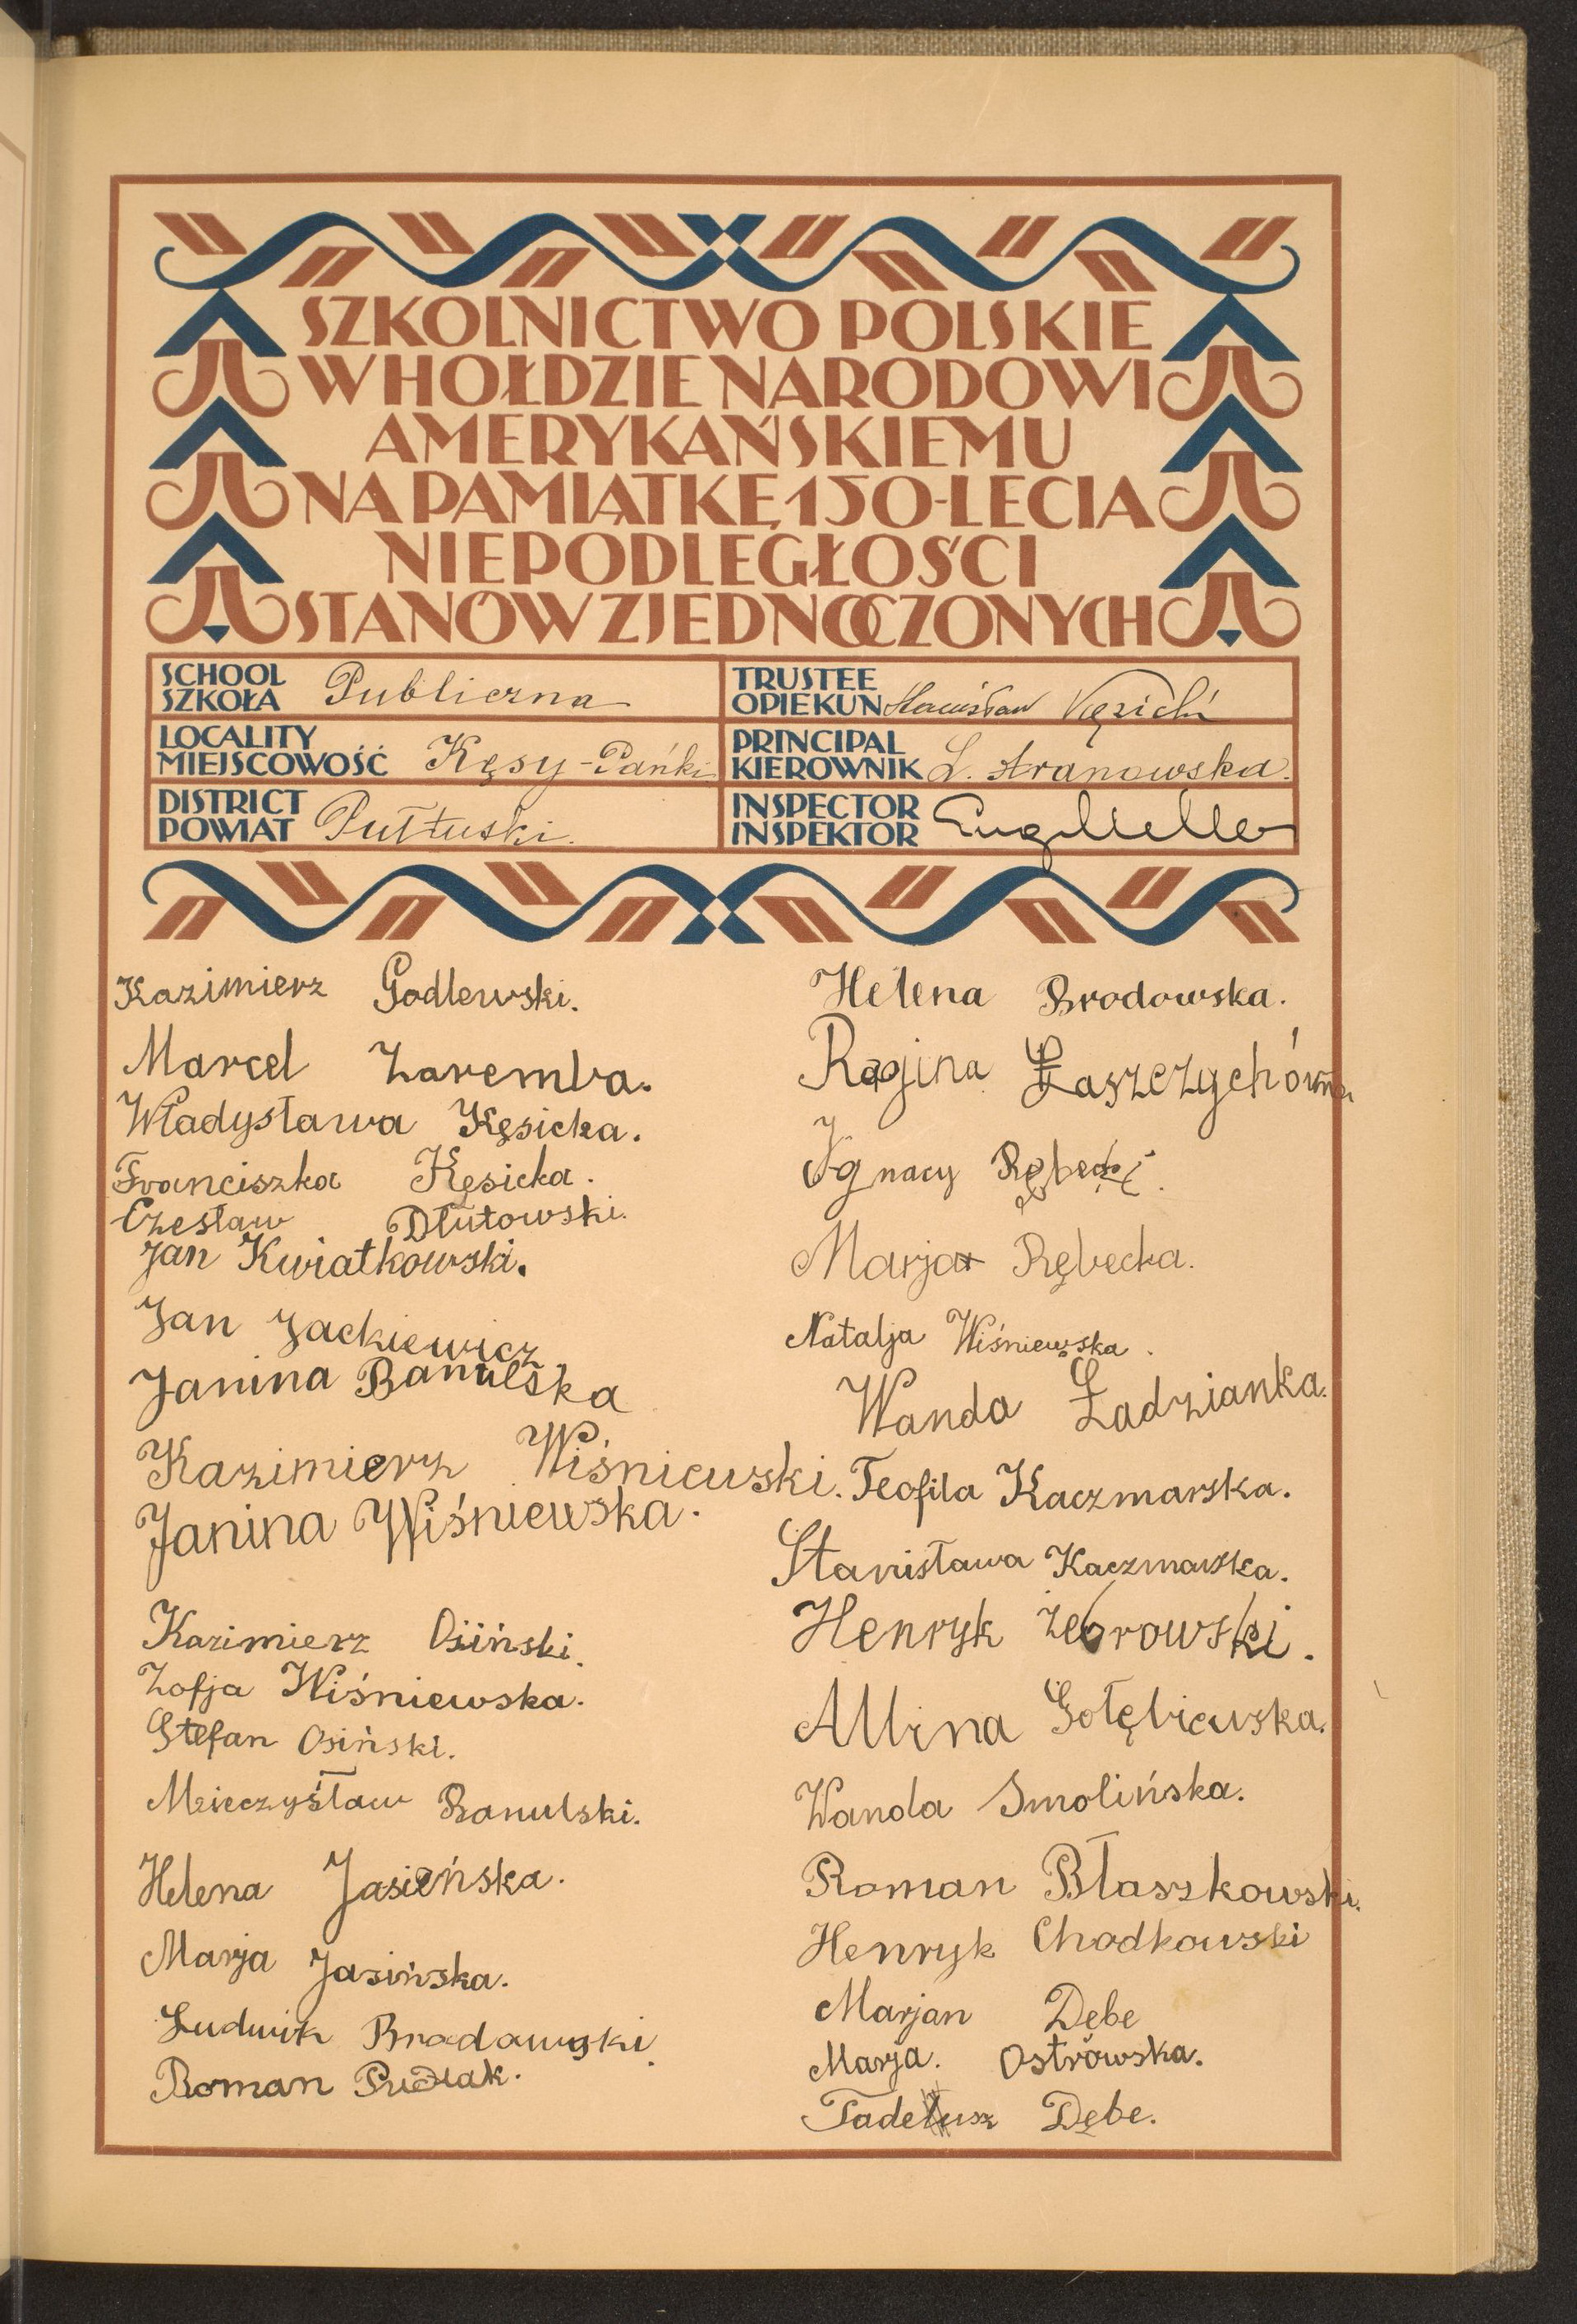 SZKOLNICTWO POLSKIE
W HOŁDZIE NARODOWI
AMERYKAŃSKIEMU
NA PAMIĄTKĘ 150-LECIA
NIEPODLEGŁOŚCI
STANÓW ZJEDNOCZONYCH
SCHOOL
SZKOŁA Publiczna
TRUSTEE
OPIEKUN Stanisław Kęsicki
LOCALITY
MIEJSCOWOŚĆ Kęsy-Pańki
PRINCIPAL
KIEROWNIK L. Aranowska.
DISTRICT
POWIAT Pułtuski.
INSPECTOR
INSPEKTOR
Kazimierz Godlewski.
Marcel Zaremba.
Władysława Kęsicka.
Franciszka Kęsicka.
Czesław Dłutowski.
Jan Kwiatkowski.
Jan Jackiewicz
Janina Banulska
Kazimierz Wiśniewski.
Janina Wiśniewska.
Kazimierz Osiński.
Zofja Wiśniewska.
Stefan Osiński.
Mieczysław Banulski.
Helena Jasieńska.
Marja Jasińska.
Ludwik Brodowski.
Roman
Helena Brodowska.
Regina Łaszczychówna
Ignacy
Marja Rębecka.
Natalja Wiśniewska.
Wanda Ładzianka.
Teofila Kaczmarska.
Stanisława Kaczmarska.
Henryk Żebrowski.
Albina Gołębiewska.
Wanda Smolińska.
Roman Błaszkowski.
Henryk Chodkowski
Marjan Dębe
Marja. Ostrowska.
Tadeusz Dębe.